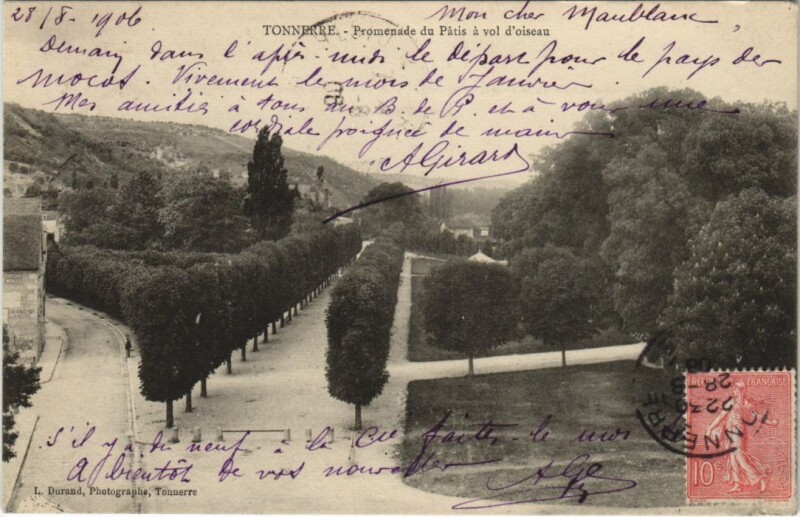 28/8 - 1906
TONNERRE. - Promenade du Pâtis à vol d'oiseau
Mon cher Maublanc
Demain dans l'après-midi le départ pour le pays de
mocos. Vivement le mois de Janvier.
Mes amitiés à tous au B de P. et à vous une
cordiale poignée de main
AGirard
S'il y a du neuf à la Cie faites-le moi
A bientôt de vos nouvelles
L. Durand, Photographe, Tonnerre
RÉPUBLIQUE FRANÇAISE
10c
POSTES
TONNERRE
28-8
06